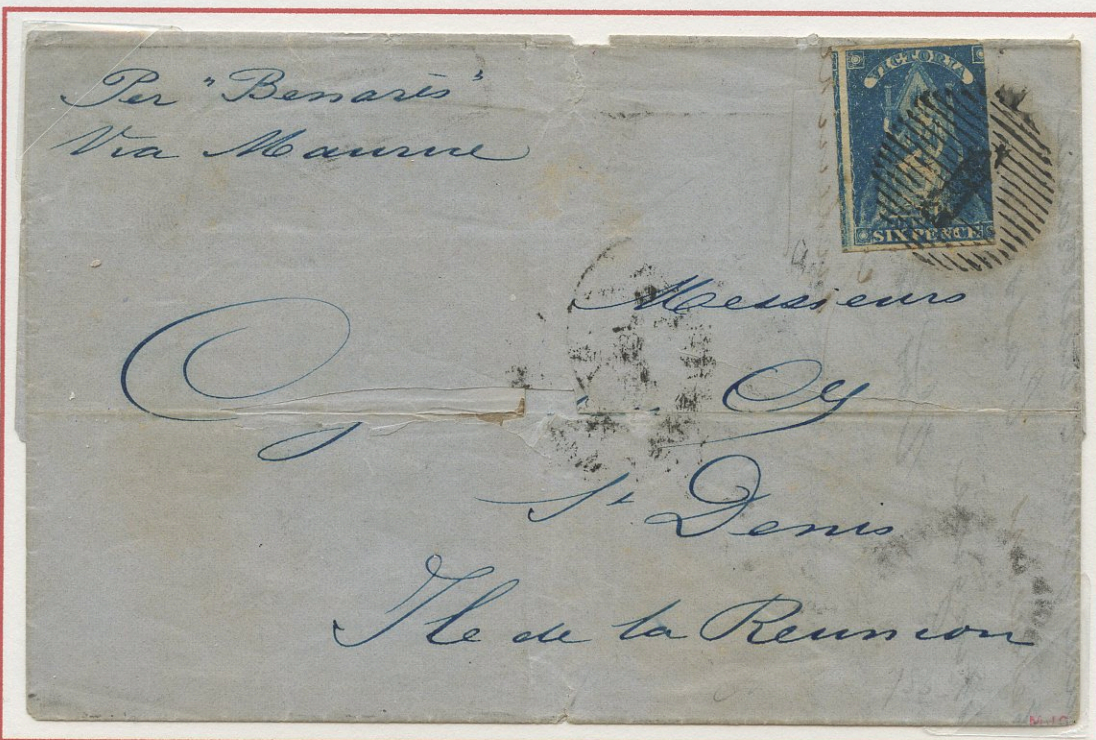 Per "Benares"
Via Maurice
VICTORIA
SIX PENCE
Messieurs
St Denis
Ile de la Reunion